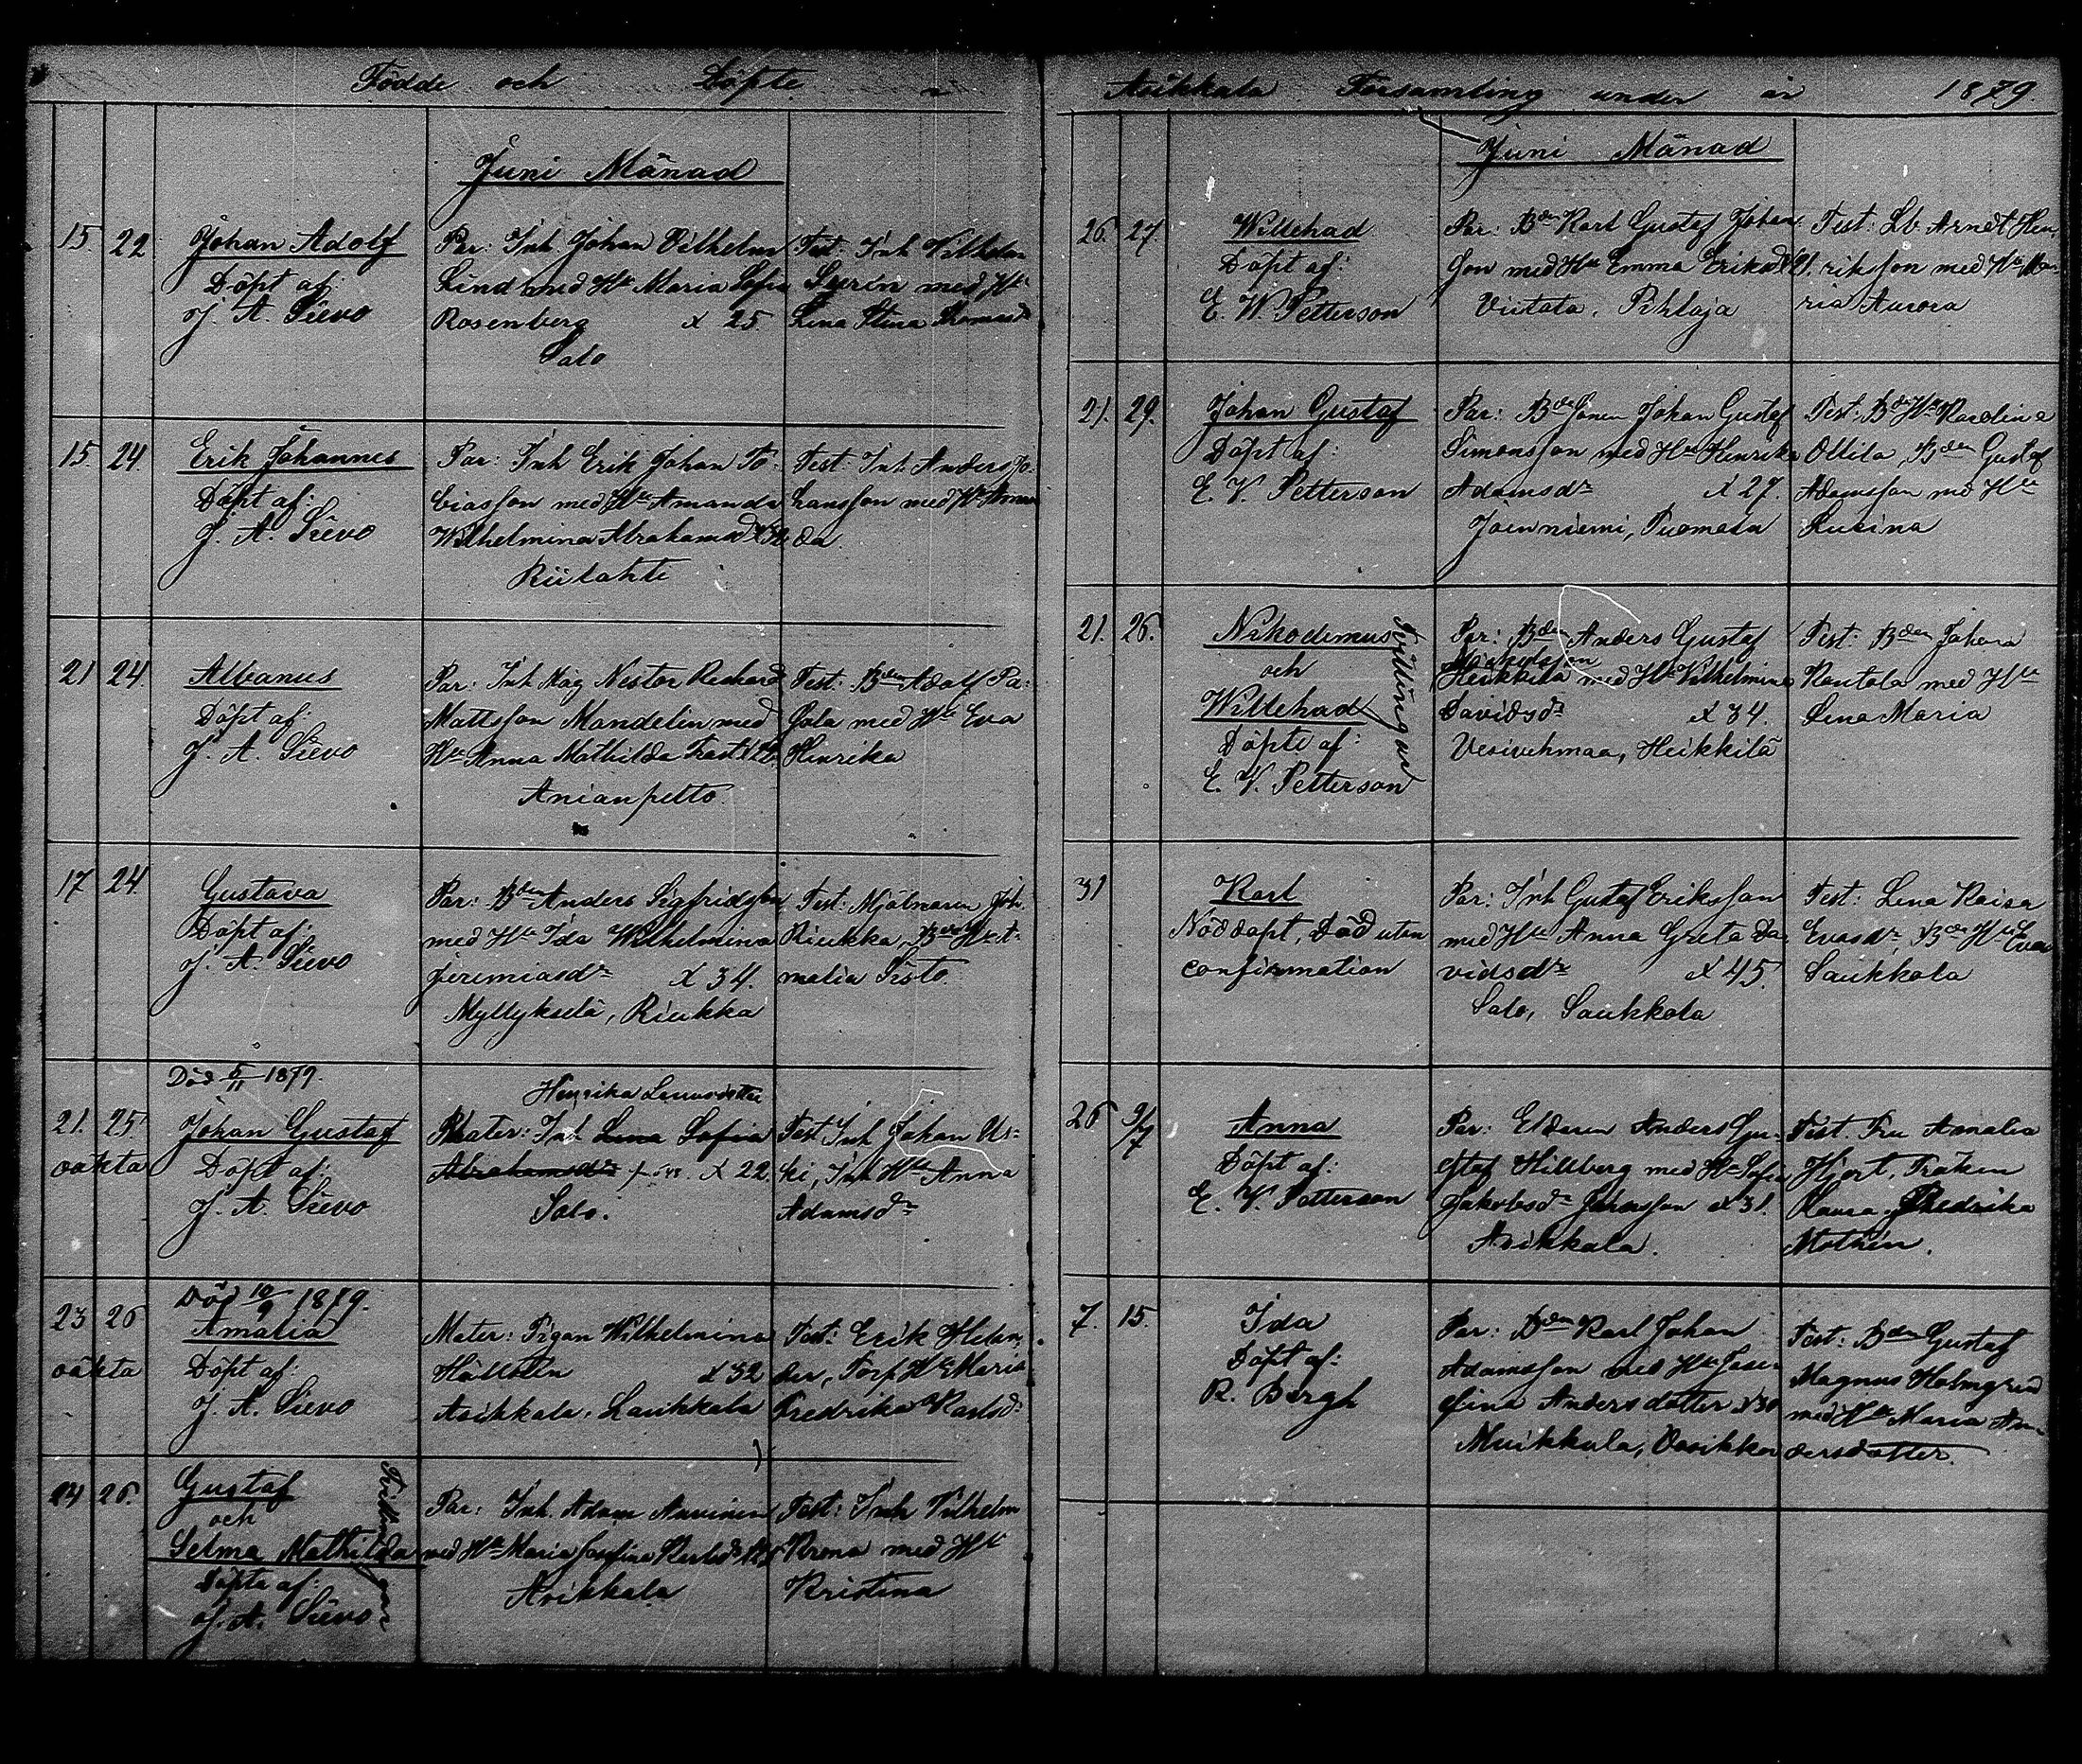 Födde och Döpte i
Juni Månad
15 22 Johan Adolf
Döpt af:
J. A. Sievo
Par: Inh Johan Vilhelm
Lind med Hu Maria Sofia
Rosenberg x 25
Salo
Test: Inh Vilhelm
med Hu
Lena Stina
15. 24. Erik Johannes
Döpt af:
J. A. Sievo
Par: Inh Erik Johan To-
biasson med Hu Amanda
Wilhelmina Abrahamsd
Riilahti
Test: Inh Anders Jo-
hansson med Hu Aman
da.
21 24. Albanus
Döpt af:
J. A. Sievo
Par: Inh Mag Nestor Richard
Mattsson Mandelin med
Hu Anna Mathilda
Anianpelto.
Test: Bden Adolf Pa-
sala med Hu Eva
Henrika
17 24 Gustava
Döpt af:
J. A. Sievo
Par: Bden Anders Sigfridsson
med Hu Ida Wilhelmina
Jeremiasdr x 34.
Myllykselä, Riukka
Test: Mjölnaren Joh.
Riukka, Hu A-
malia Sisto.
Död 5/11 1879.
21. 25. Johan Gustaf
oäkta Döpt af:
J. A. Sievo
Henrika
Mater: Inh Lena Sofia
Abrahamsdr x 22.
Salo.
Test Inh Johan Us-
ki, Inh Hu Anna
Adamsdr
Död 10/9 1879.
23 26 Amalia
oäkta Döpt af:
J. A. Sievo
Mater: Pigan Wilhelmina
Hällstén x 32
Asikkala, Laukkala
Test: Erik Helan-
der, Torp Hu Maria
Fredrika Karlsd:
24 26. Gustaf
och
Selma Mathilda
Döpte af:
J. A. Sievo
Par: Inh. Adam Nurminen
med Hu Maria Josefina
Asikkala
Test: Inh Vilhelm
Krona med Hu
Kristina
Asikkala Församling under år 1879.
Juni Månad
26. 27. Willehad
Döpt af:
E. W. Petterson
Par: Bden Karl Gustaf Johan
son med Hu Emma Eriksd
Viitala, Pihlaja
Test: Lb. Arndt Hen-
riksson med Hu Ma-
ria Aurora
21. 29. Johan Gustaf
Döpt af:
E. V. Petterson
Par: Bdesonen Johan Gustaf
Simonsson med Hu Henrika
Adamsdr x 27.
Joenniemi, Tuomala
Test: Bde Hu Karolina
Ollila, Bden Gustaf
Adamsson med Hu
Lusina
21. 26. Nikodemus
och
Willehad
Tvillingar
Döpte af:
E. V. Petterson
Par: Bden Anders Gustaf
Heikkilä med Hu Vilhelmina
Davidsdr x 34.
Vesivehmaa, Heikkilä
Test: Bden Johan
Rautala med Hu
Lena Maria
31 Karl
Nöddöpt, Död utan
confirmation
Par: Inh Gustaf Eriksson
med Hu Anna Greta Da-
vidsdr x 45.
Salo, Saukkola
Test: Lena Kaisa
Evasdr, Bde Hu Eva
Saukkola
26 9/7 Anna
Döpt af:
E. V. Petterson
Par: Eldaren Anders Gu-
staf Hillberg med Hu Sofia
Jakobsdr x 31.
Asikkala.
Test. Fru Amalia
Hjort, Fröken
Laura Fredrika
Molhin.
7. 15. Ida
Döpt af:
R. Bergh
Par: Bden Karl Johan
Adamsson med Hu Jose-
fina Andersdotter x 30
Muikkula, Vasikka
Test: Bden Gustaf
Magnus Holmgren
med Hu Maria An-
dersdotter.